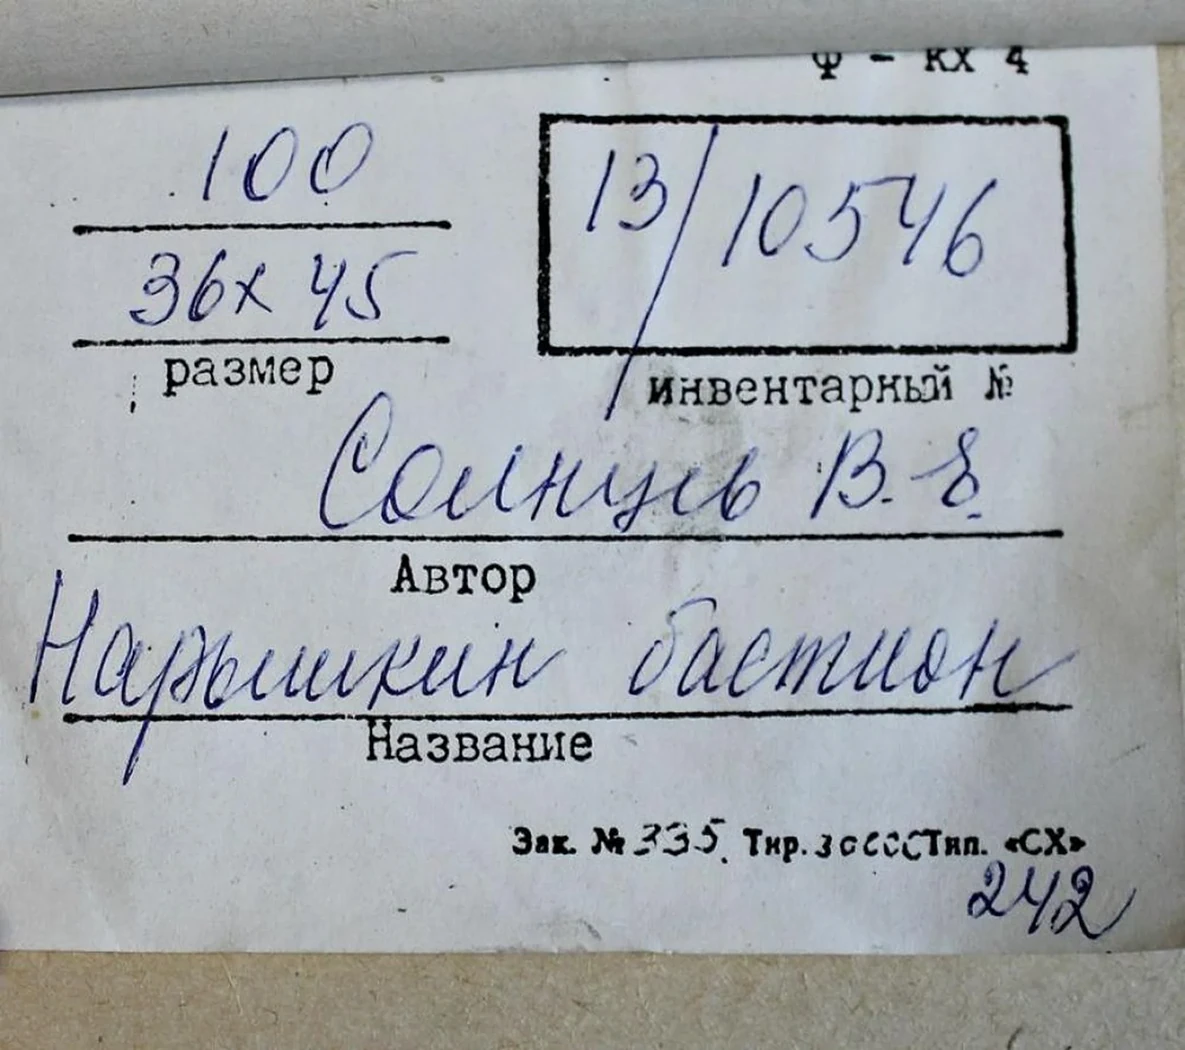 Ф - КХ 4
100
13/10546
36х 45
размер
инвентарный №
Солнцев В. Е.
Автор
Нарышкин бастион
Название
Зак. № 335. Тир. 30000 Тип. «СХ»
242